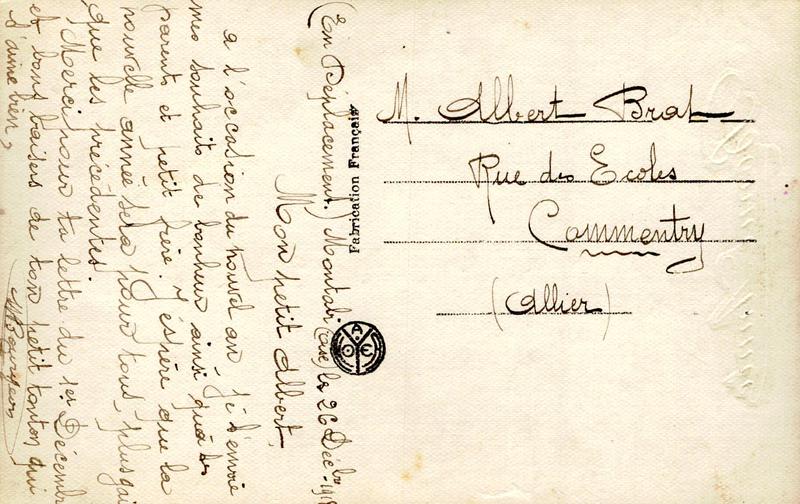 (En Déplacement) le 26 Déc
Mon petit Albert,
a l'occasion du nouvel an, je t'envoie
mes souhaits de bonheur ainsi qu'à tes
parents et petit frère. J'espère que la
nouvelle année sera pour tous, plus gai
que les précédentes.
Merci pour ta lettre du 1er Décembre
et bons baisers de ton petit tonton qui
t'aime bien,
Fabrication Française
M. Albert Brat
Rue des Ecoles
Commentry
(Allier)